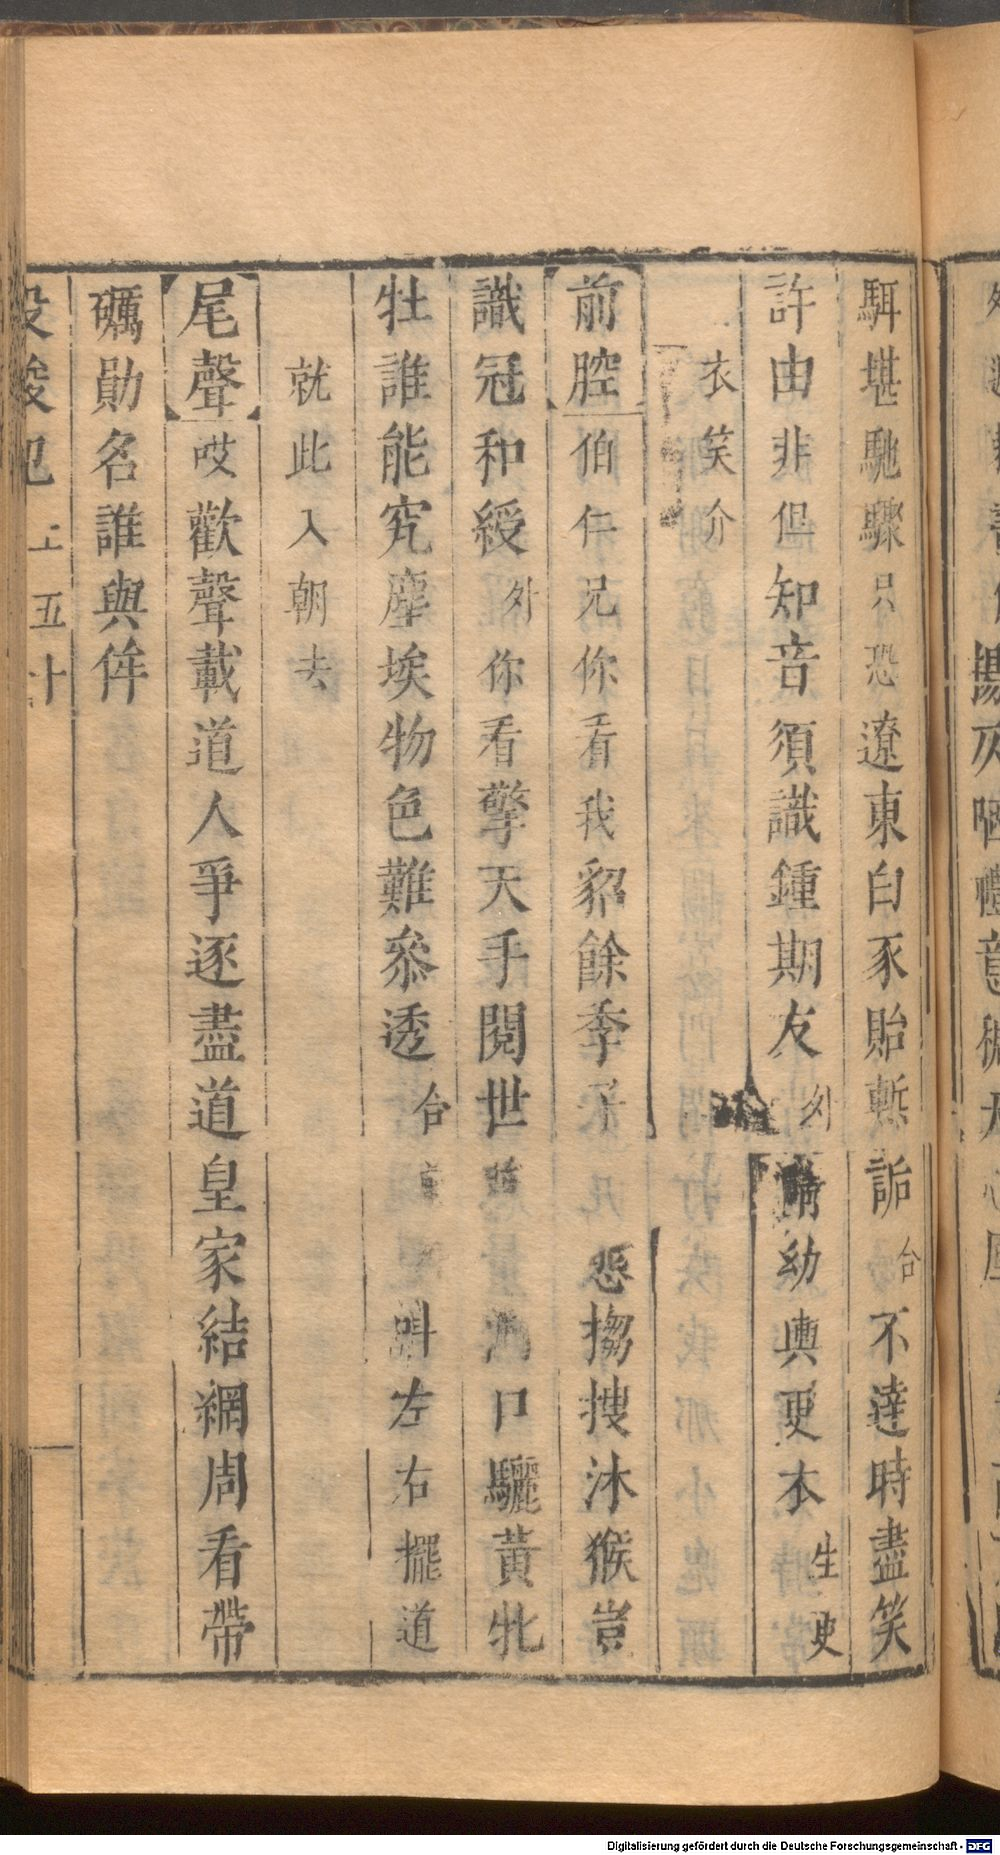 駬堪馳驟只恐遼東白豕貽慙詬合不達時盡笑
許由非但知音須識鍾期友外 幼輿更衣生更
衣笑介
前腔伯仁兄你看我貂餘季子 怨搊搜沐猴豈
識冠和綬外你看擎天手閱世 口驪黃牝
牡誰能究塵埃物色難叅透合 叫左右擺道
就此入朝去
尾聲哎歡聲載道人爭逐盡道皇家結網周看帶
礪勛名誰與侔
投梭記 上 五十
Digitalisierung gefördert durch die Deutsche Forschungsgemeinschaft - DFG